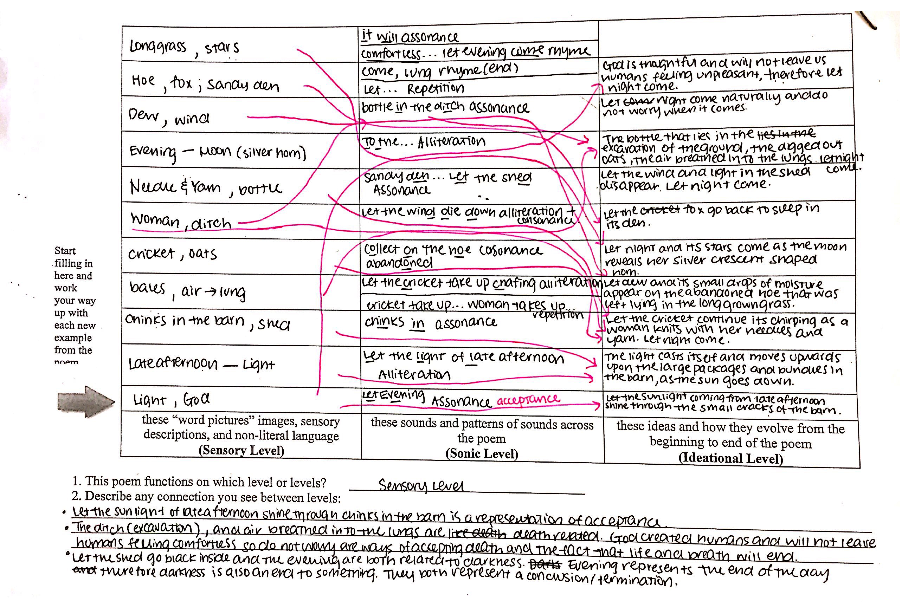 it will assorance
Long grass, stars
comfortless... let evening come rhyme
come, lung rhyme (end)
God is thoughtful and will not leave us
humans feeling unpleasant, therefore let
night come.
Hoe, fox; sandy den
Let... Repetition
bottle in the ditch assonance
Let night come naturally and do
not worry when it comes.
Dew, wind
To the... Alliteration
The bottle that lies in the
excavation of the ground, the digged out
oats, the air breathed in to the lungs. let night
come.
Evening — Moon (silver horn)
Sandy den... Let the shed
Assonance
Let the wind and light in the shed
disappear. Let night come.
Needle & Yarn, bottle
Let the wind die down alliteration +
consonance
Let the cricket fox go back to sleep in
its den.
Woman, ditch
Start
filling in
here and
work
your way
up with
each new
example
from the
poem
cricket, oats
collect on the hoe cosonance
abandoned
Let night and its stars come as the moon
reveals her silver crescent shaped
horn.
bales, air → lung
Let the cricket take up chafing alliteration
cricket take up... woman takes up
repetition
Let dew and its small drops of moisture
appear on the abandoned hoe that was
left lying in the long grown grass.
Chinks in the barn, shed
chinks in assonance
Let the cricket continue its chirping as a
woman knits with her needles and
yarn. Let night come.
Late afternoon — Light
Let the light of late afternoon
Alliteration
The light casts itself and moves upwards
upon the large packages and bundles in
the barn, as the sun goes down.
Light, God
Let Evening Assonance acceptance
Let the sunlight coming from late afternoon
shine through the small cracks of the barn.
these "word pictures" images, sensory
descriptions, and non-literal language
(Sensory Level)
these sounds and patterns of sounds across
the poem
(Sonic Level)
these ideas and how they evolve from the
beginning to end of the poem
(Ideational Level)
1. This poem functions on which level or levels? Sensory Level
2. Describe any connection you see between levels:
• Let the sunlight of late afternoon shine through chinks in the barn is a representation of acceptance
• The ditch (excavation), and air breathed in to the lungs are like death death related. God created humans and will not leave
humans felling comfortless so do not worry are ways of accepting death and the fact that life and breath will end.
• Let the shed go black inside and the evening are both related to darkness. Evening represents the end of the day
and therefore darkness is also an end to something. They both represent a conclusion/termination.